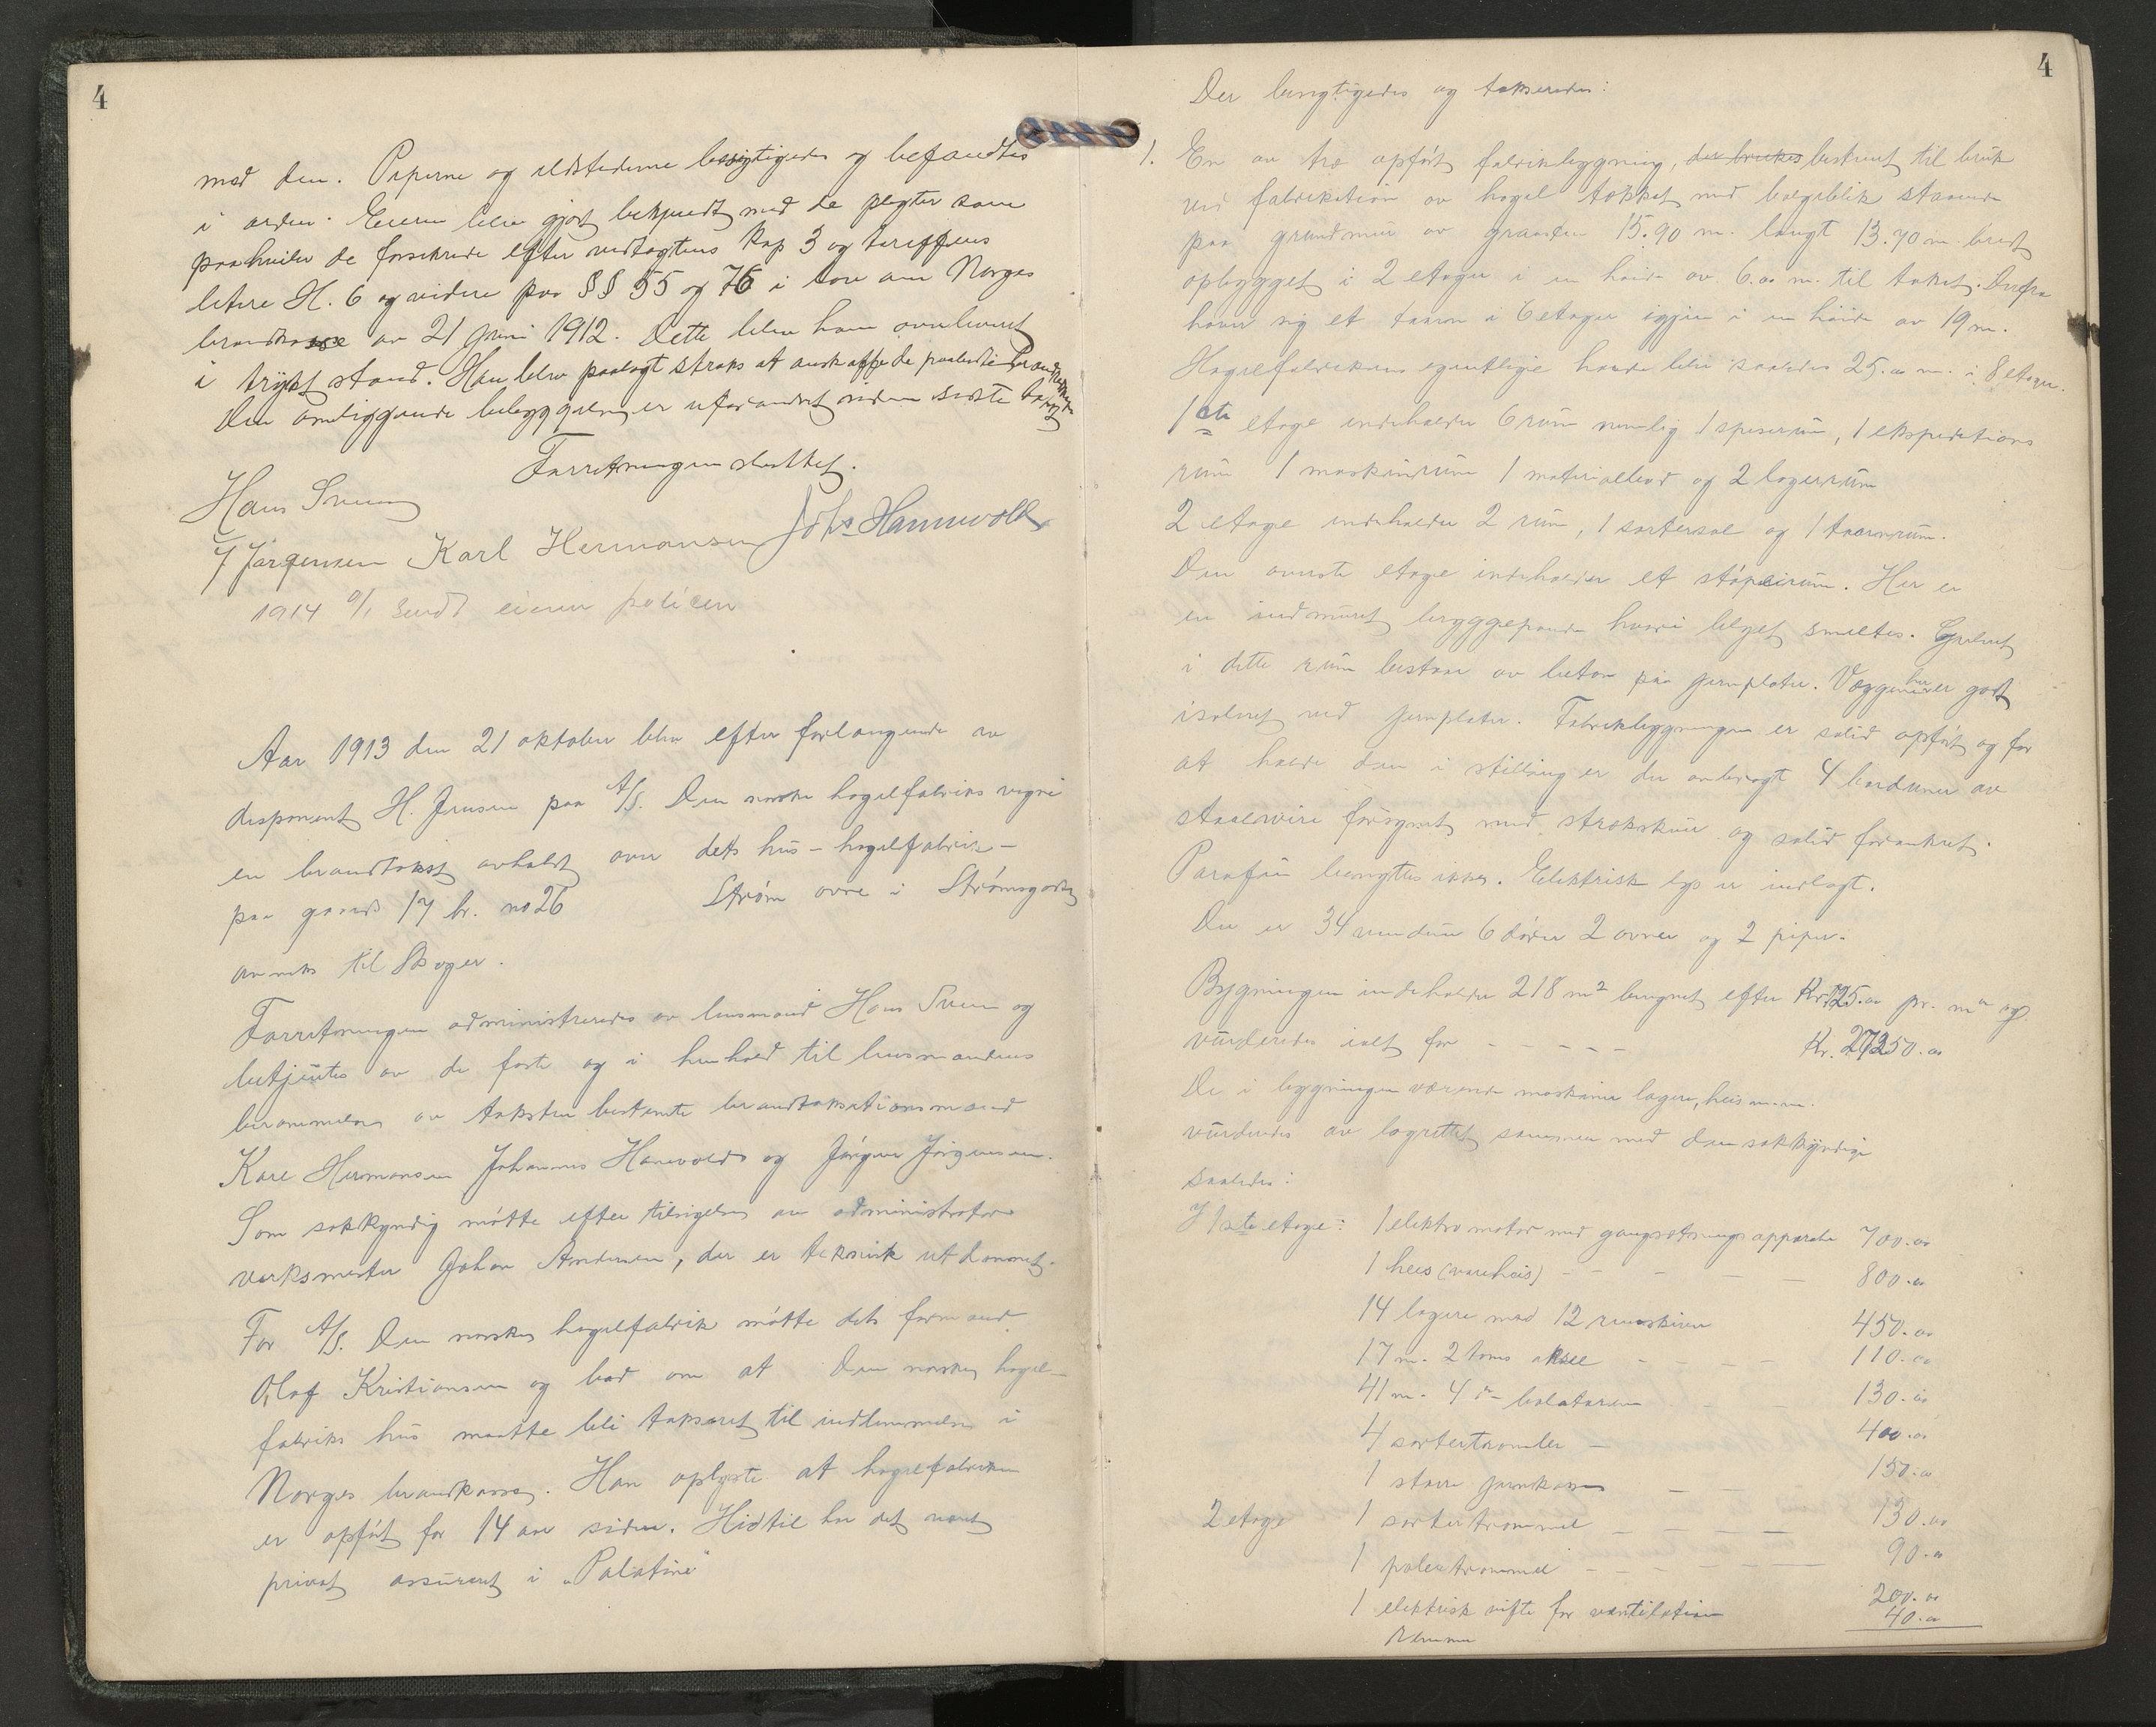 4
med den. Piperne og ildstederne besigtigedes og befandtes
i orden. Eieren blev gjort bekjendt med de pligter som
paahviler de forsikrede efter vedtægtens Kap 3 og tariffens
litra H. 6 og videre paa §§ 55 og 76 i lov om Norges
brandkasse av 21 juni 1912. Dette blev ham overleveret
i trykt stand. Han blev paalagt straks at anskaffe de paabudte brandredskaper
Den omliggende bebyggelse er uforandret siden sidste takst
Forretningen sluttet.
Hans Sveen
J Jørgensen Karl Hermansen Johs Hannevold
1914 9/1 Sendt eieren policen
Aar 1913 den 21 oktober blev efter forlangende av
disponent H. Jensen paa A/S. Den norske haglfabriks vegne
en brandtakst avholdt over dets hus - haglfabrik -
paa gaards 17 br. no 26 Strøm øvre i Strømsgodset
anneks til Skoger.
Forretningen administreredes av lensmand Hans Sveen og
betjentes av de faste og i henhold til lensmandens
berammelse av taksten bestemte brandtakstationsmænd
Karl Hermansen Johannes Hanevold og Jørgen Jørgensen.
Som sakkyndig møtte efter tilsigelse av administrator
verksmester Johan Andersen, der er teknisk utdannet.
For A/S. Den norske haglfabrik møtte dets formand
Olaf Kristiansen og bad om at Den norske hagl-
fabriks hus maatte bli taksert til indlemmelse i
Norges brandkasse. Han oplyste at haglfabriken
er opført for 14 aar siden. Hidtil har det været
privat assurert i "Palatine"
4
Der besigtigedes og takseredes:
1. En av træ opført fabrikbygning, der brukes bestemt til bruk
ved fabrikation av hagl tækket med bølgeblik staaende
paa grundmur av graasten 15.90 m. langt 13.70 m. bredt
opbygget i 2 etager i en høide av 6.00 m. til taket. Derfra
hæver sig et taarn i 6 etager igjen i en høide av 19 m.
Haglfabrikens egentlige høide blir saaledes 25.00 m. i 8 etager.
1ste etage indeholder 6 rum nemlig 1 spiserum, 1 ekspeditions
rum 1 maskinrum 1 materialbod og 2 lagerrum
2 etage indeholder 2 rum, 1 sortersal og 1 taarnrum.
Den øverste etage indeholder et støperirum. Her er
en indmuret bryggepande hvori blyet smeltes. Gulvet
i dette rum bestaar av beton paa jernplater. Væggene her er godt
isolert med jernplater. Fabrikbygningen er solid opført og for
at holde den i stilling er der anbragt 4 barduner av
staalwire forsynet med strækskruer og solid forankret.
Parafin benyttes ikke. Elektrisk lys er indlagt.
Der er 34 vinduer 6 dører 2 ovner og 2 piper.
Bygningen indeholder 218 m² beregnet efter Kr. 125.00 pr. m² og
vurderedes ialt for - - - - - Kr. 27250.00
De i bygningen værende maskiner lagere, heis m.m.
vurderedes av lagrettet sammen med den sakkyndige
saaledes:
I 1ste etage: 1 elektromotor med gangsætningsapparater 700.00
1 heis (vareheis) - - - - - 800.00
14 lagere med 12 remskiver 450.00
17 m. 2 toms aksel - - - - 110.00
41 m. 4 in balatarem - - 130.00
4 sortertromler - 400.00
1 større jernkasse - - 150.00
2 etage 1 sortertrommel - - - - 130.00
1 polertrommel - - - - - 90.00
1 elektrisk vifte for ventilation 200.00
Remmer 40.00